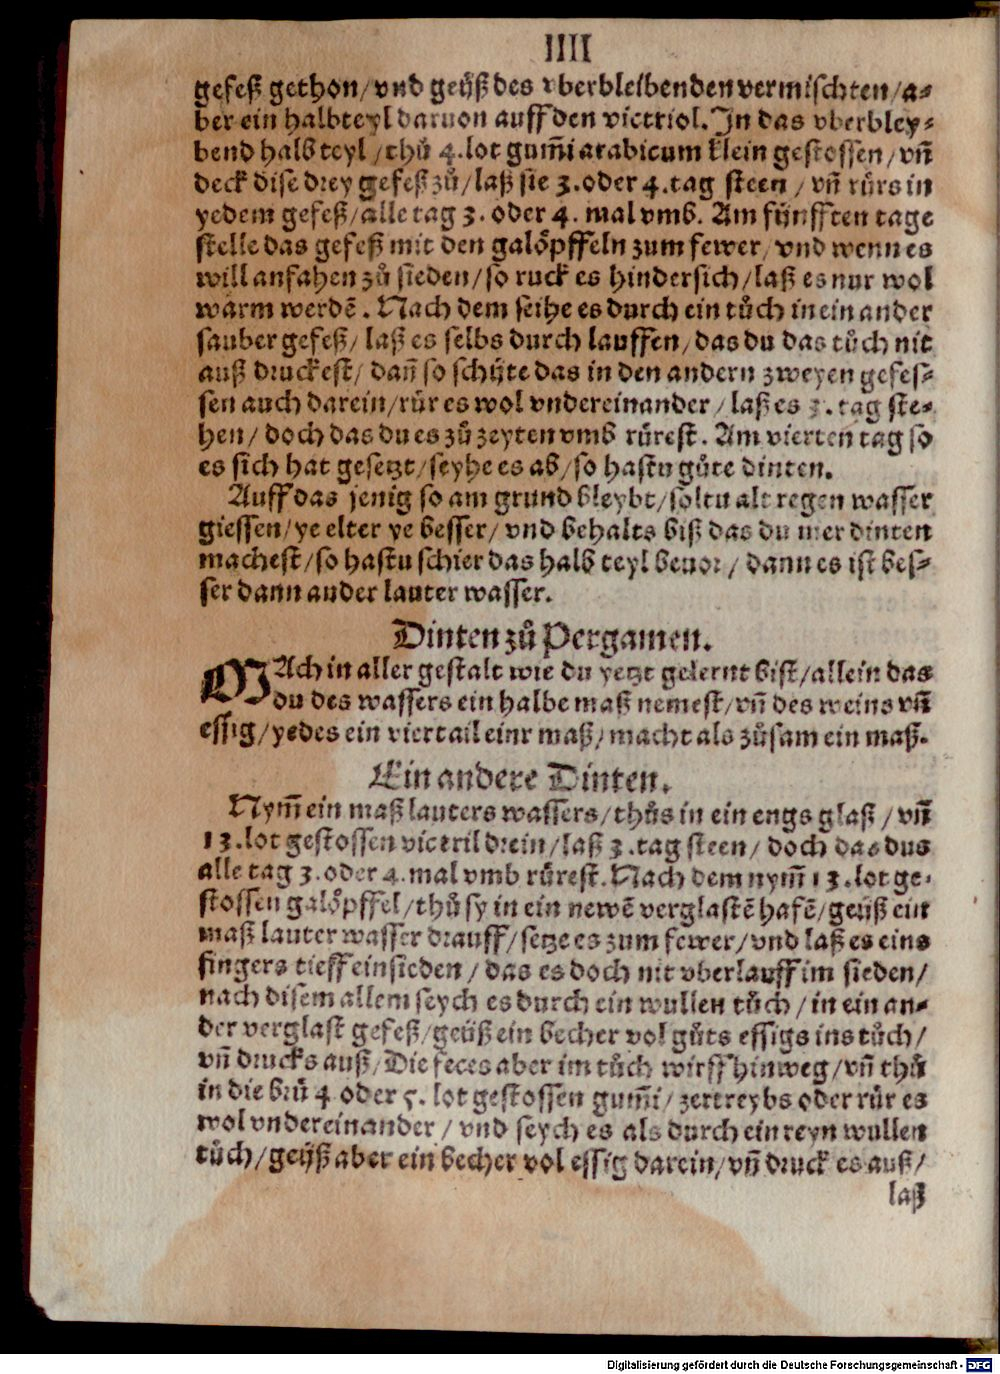 IIII
gefeß gethon/ vnd geüß des vberbleibenden vermischten/ a⸗
ber ein halbteyl daruon auff den victriol. In das vberbley⸗
bend halb teyl / thů 4. lot gum̄i arabicum klein gestossen/ vñ
deck dise drey gefeß zů/ laß sie 3. oder 4. tag steen / vñ rürs in
yedem gefeß/ alle tag 3. oder 4. mal vmb. Am fünfften tage
stelle das gefeß mit den galöpffeln zum fewer/ vnd wenn es
will anfahen zů sieden/ so ruck es hindersich/ laß es nur wol
warm werdē. Nach dem seihe es durch ein tůch in ein ander
sauber gefeß/ laß es selbs durch lauffen/ das du das tůch nit
auß druckest/ dañ so schüte das in den andern zweyen gefes⸗
sen auch darein/ rür es wol vndereinander / laß es 3. tag ste⸗
hen/ doch das du es zů zeyten vmb rürest. Am vierten tag so
es sich hat gesetzt/ seyhe es ab/ so hastu gůte dinten.
Auff das jenig so am grund bleybt/ soltu alt regen wasser
giessen/ ye elter ye besser/ vnd behalts biß das du mer dinten
machest/ so hastu schier das halb teyl beuor/ dann es ist bes⸗
ser dann ander lauter wasser.
Dinten zů Pergamen.
MAch in aller gestalt wie du yetzt gelernt bist/ allein das
du des wassers ein halbe maß nemest/ vñ des weins vñ
essig/ yedes ein viertail einr maß/ macht als zůsam ein maß.
Ein andere Dinten.
Nym̄ ein maß lauters wassers/ thůs in ein engs glaß / vñ
13. lot gestossen victril drein/ laß 3. tag steen/ doch das dus
alle tag 3. oder 4. mal vmb rürest. Nach dem nym̄ 13. lot ge⸗
stossen galöpffel/ thů sy in ein newē verglastē hafē/ geüß ein
maß lauter wasser drauff/ setze es zum fewer/ vnd laß es eins
fingers tieff einsieden / das es doch nit vberlauff im sieden/
nach disem allem seych es durch ein wullen tůch / in ein an⸗
der verglast gefeß/ geüß ein becher vol gůts essigs ins tůch/
vñ drucks auß/ Die feces aber im tůch wirff hinweg/ vñ thů
in die brü 4 oder 5. lot gestossen gum̄i/ zertreybs oder rür es
wol vndereinander/ vnd seych es als durch ein reyn wullen
tůch/ geüß aber ein becher vol essig darein/ vñ druck es auß/
laß
Digitalisierung gefördert durch die Deutsche Forschungsgemeinschaft - DFG